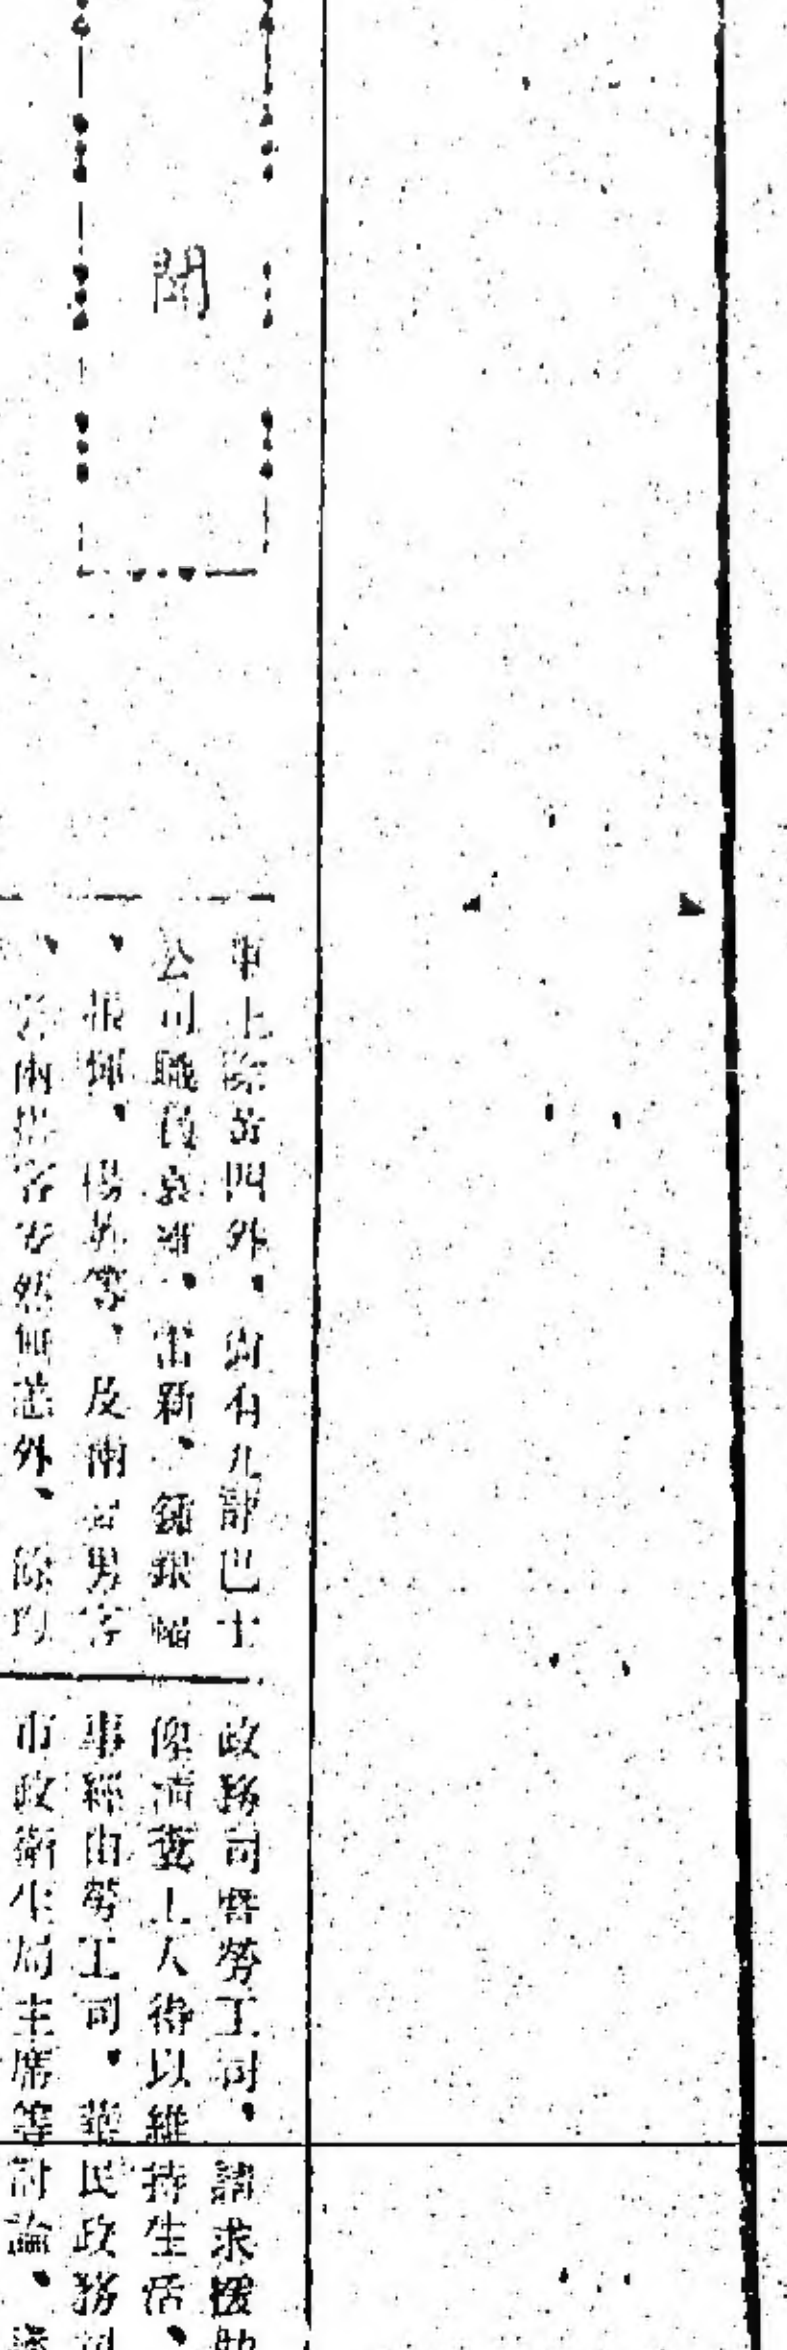 聞
車上除黃四外、尚有九部巴士
公司職員袁、雷新、鍾銀
、楊等、及兩男客
、兩搭客安然無恙外、餘均
政務司暨勞工司、請求援助
俾清糞工人得以維持生活、
事經由勞工司、華民政務司
市政衛生局主席等討論、